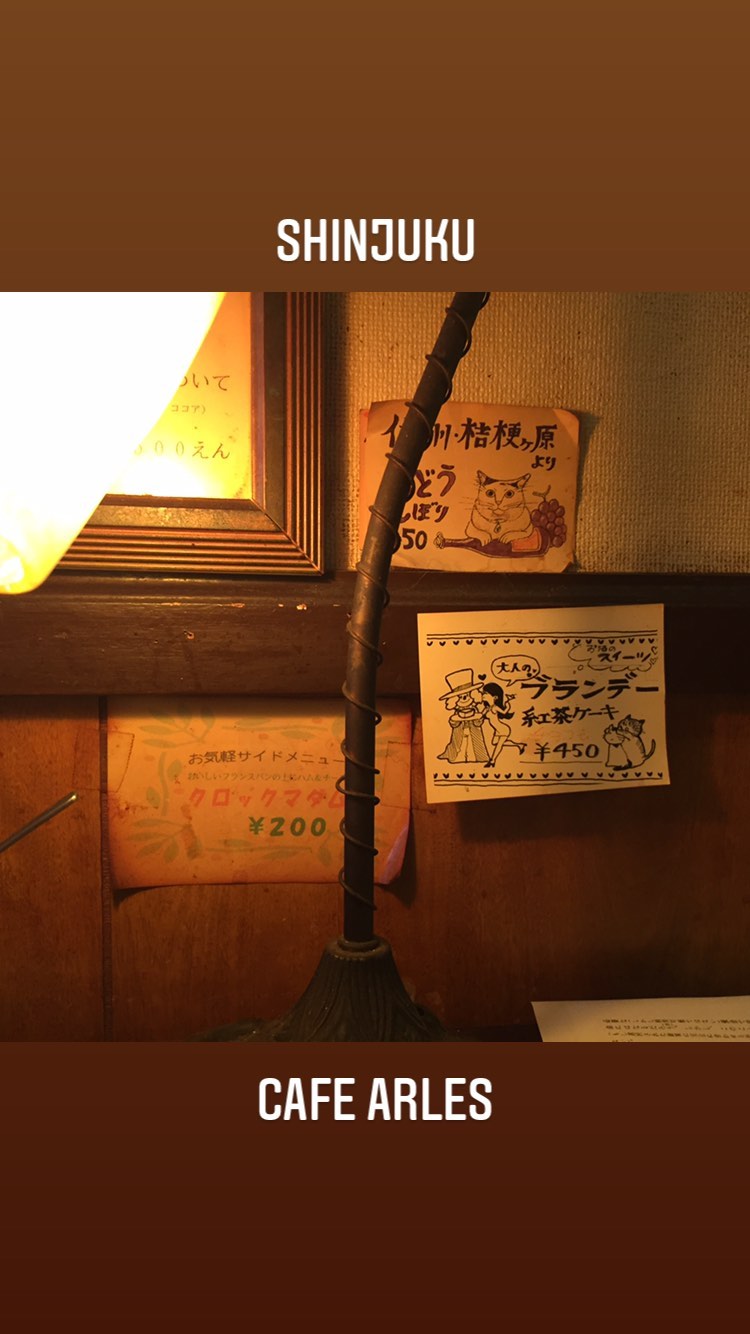 SHINJUKU
ついて
ココア)
500えん
信州・桔梗ヶ原
より
ぶどう
しぼり
50
お酒の
スイーツ
大人の
ブランデー
紅茶ケーキ
¥450
お気軽サイドメニュー
おいしいフランスパンの上に
クロックマダム
¥200
CAFE ARLES